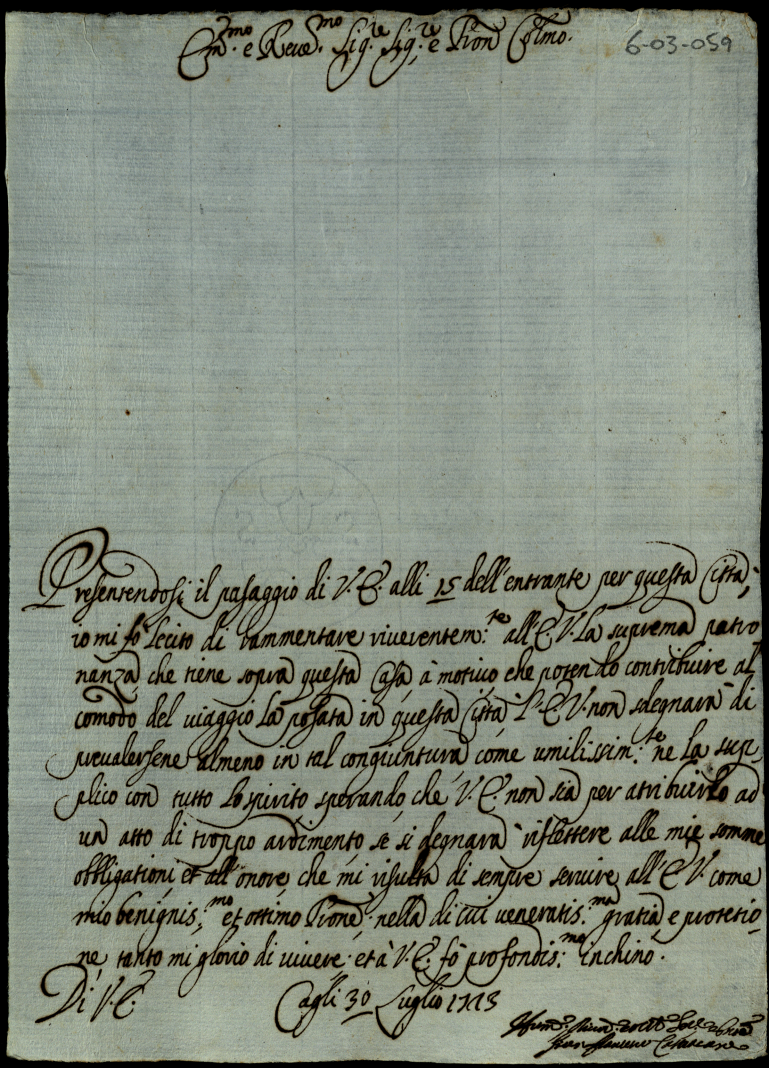 Em.mo e Reue.mo Sig.re Sig.re e Pron Colmo.
6-03-059
Presentendosi il pasaggio di V.E. alli 15 dell'entrante per questa Città,
io mi fò lecito di rammentare riuerentem.te all'E.V. la suprema patro
nanza che tiene sopra questa Casa à motiuo che potendo contribuire al
comodo del uiaggio la posata in questa Città l'E.V. non sdegnarà di
preualersene almeno in tal congiuntura come umilissim.te ne la sup
plico con tutto lo spirito sperando che V.E. non sia per atribuirlo ad
un atto di troppo ardimento se si degnarà riflettere alle mie somme
obbligationi et all'onore che mi risulta di sempre seruire all'E.V. come
mio benignis.mo et ottimo Prone nella di cui ueneratis.ma gratia e protetio
ne tanto mi glorio di uiuere et à V.E. fò profondis.mo inchino.
Di V.E.
Cagli 30 Luglio 1713